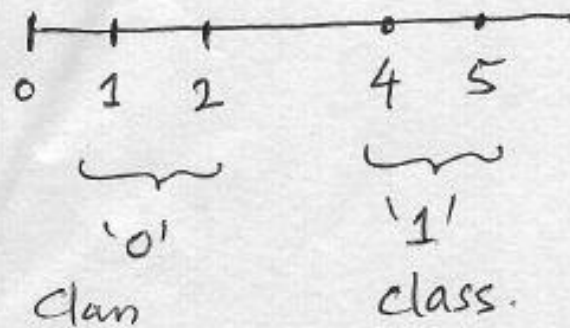 0 1 2 4 5
'0' '1'
Class class.